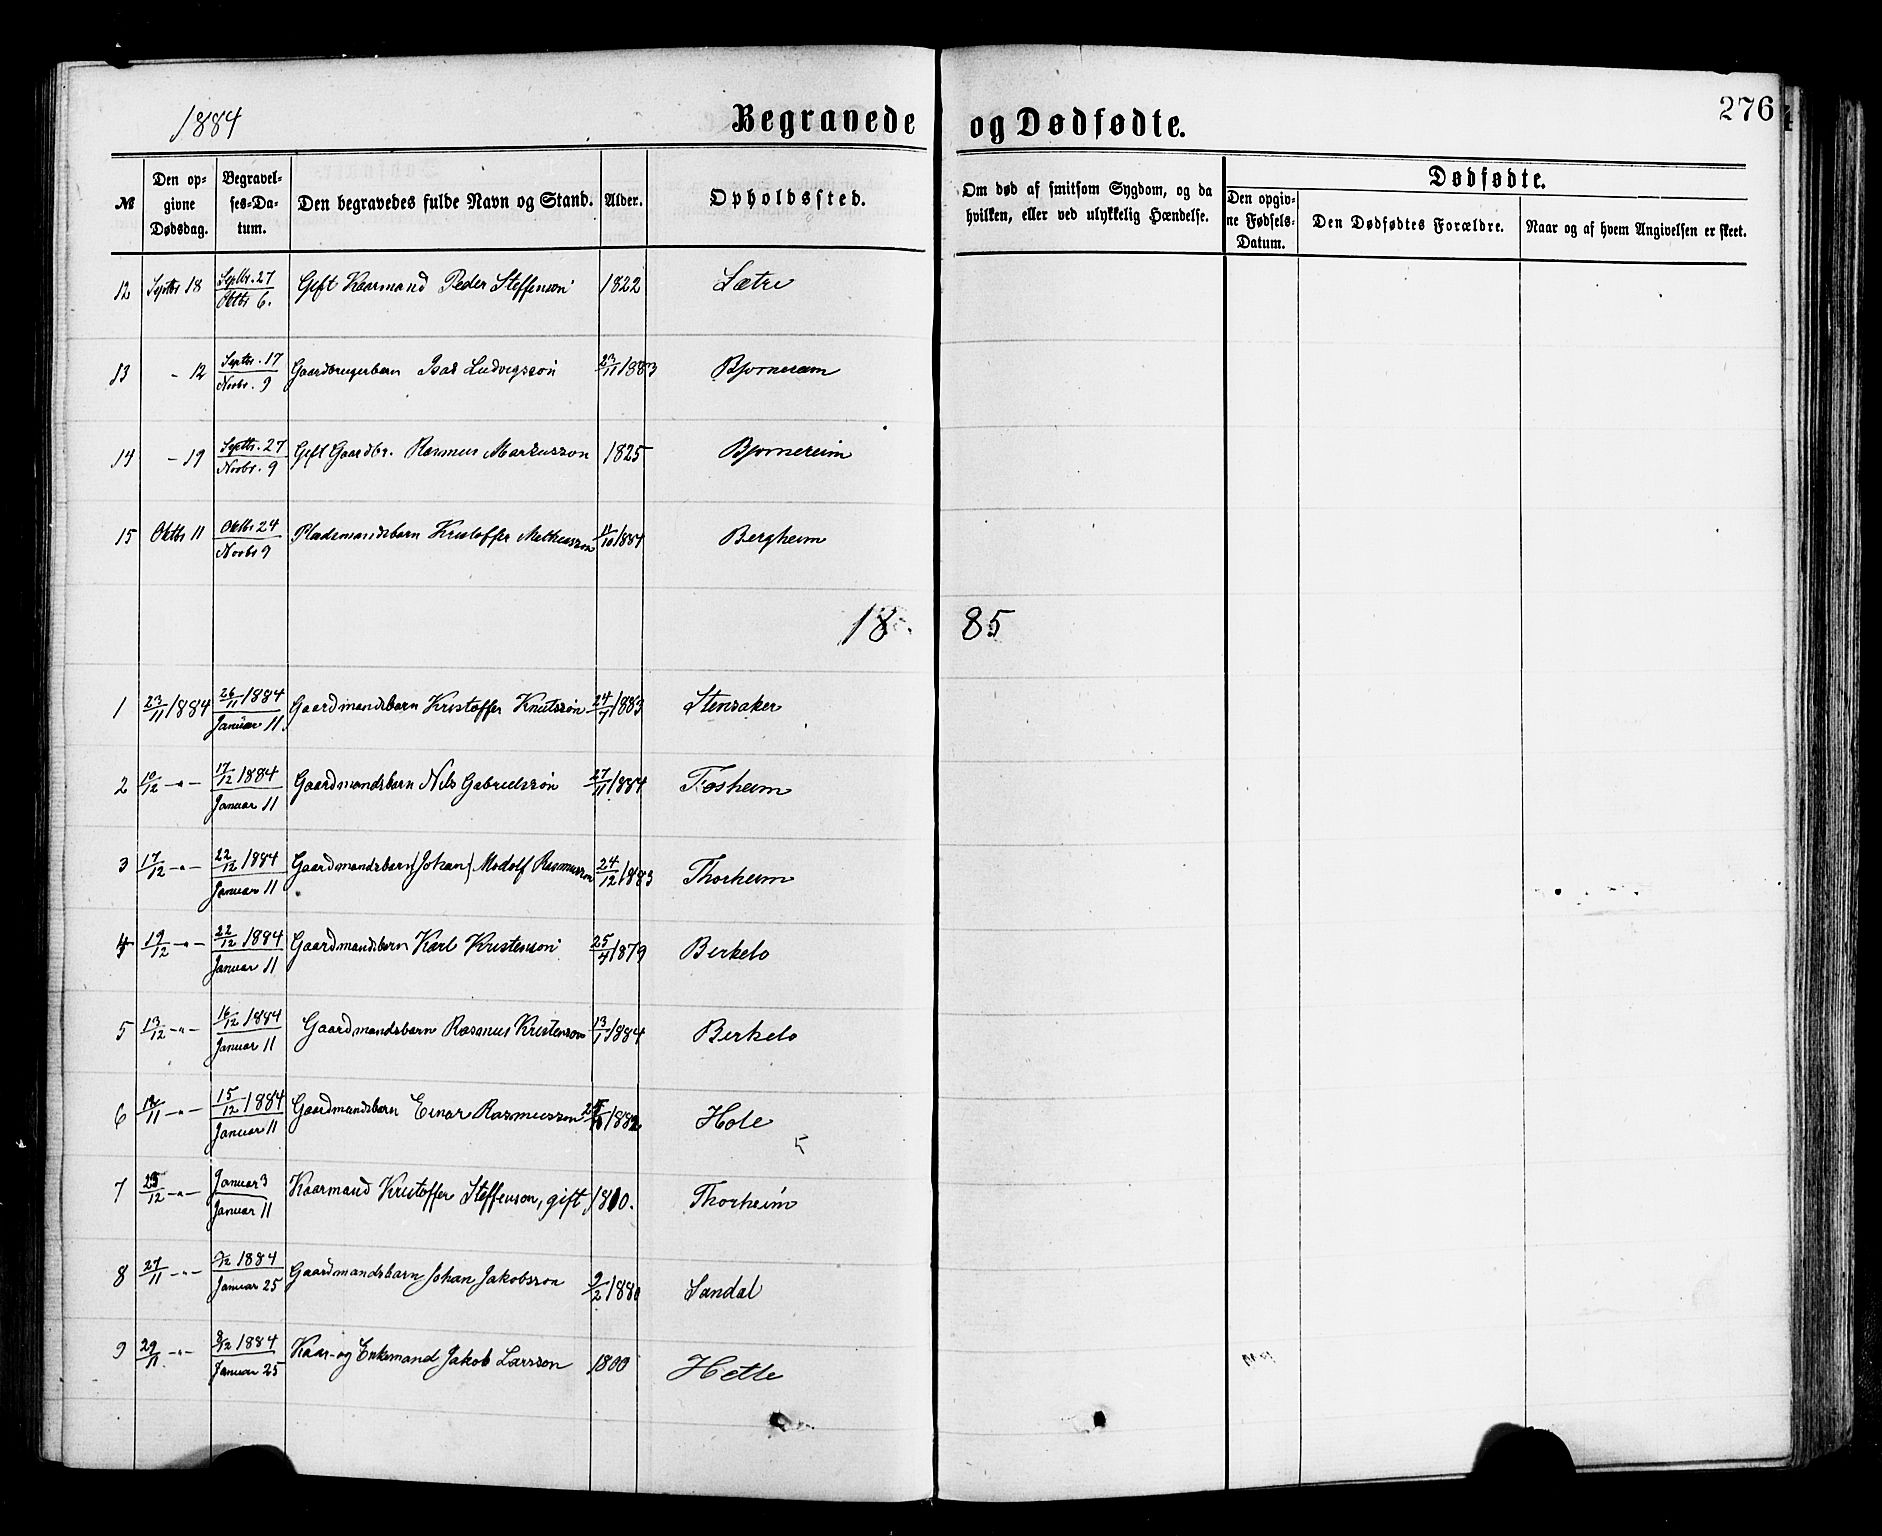 1884 Begravede og Dødfødte. 276
№ Den opgivne Dødsdag. Begravelses-Datum. Den begravedes fulde Navn og Stand. Alder. Opholdssted. Om død af smitsom Sygdom, og da hvilken, eller ved ulykkelig Hændelse. Dødfødte.
Den opgivne Fødsels-Datum. Den Dødfødtes Forældre. Naar og af hvem Angivelsen er skeet.
12 Septbr 18 Septbr. 27 / Oktbr 6. Gift Kaarmand Peder Steffenson 1822 Sætre
13 - 12 Septbr. 17 / Novbr. 9 Gaardbrugerbarn Isak Ludvigsson 23/11 1883 Bjørneram
14 - 19 Septbr. 27 / Novbr. 9 Gift Gaardbr. Rasmus Markusson 1825 Bjørnereim
15 Oktbr 11 Oktbr 24 / Novbr 9 Pladsmandsbarn Kristoffer Mathiasson 11/10 1884 Bergheim
18 85
1 23/11 1884 26/11 1884 / Januar 11. Gaardmandsbarn Kristoffer Knutsson 24/7 1883 Stensaker
2 10/12 -"- 17/12 1884 / Januar 11 Gaardmandsbarn Nils Gabrielsson 27/11 1884 Fosheim
3 17/12 -"- 22/12 1884 / Januar 11 Gaardmandsbarn (Johan) Modolf Rasmusson 24/12 1883 Thorheim
4 19/12 -"- 22/12 1884 / Januar 11 Gaardmandsbarn Karl Kristenson 25/4 1879 Birkelo
5 13/12 -"- 16/12 1884 / Januar 11 Gaardmandsbarn Rasmus Kristenson 13/1 1884 Birkelo
6 18/11 -"- 15/12 1884 / Januar 11 Gaardmandsbarn Einar Rasmusson 1882 Hole
7 25/12 -"- Januar 3 / Januar 11 Kaarmand Kristoffer Steffenson, gift, 1810. Thorheim
8 27/11 -"- 2/12 1884 / Januar 25 Gaardmandsbarn Johan Jakobsson 9/2 1880 Sandal
9 29/11 -"- 3/12 1884 / Januar 25 Kaar- og Enkemand Jakob Larsson 1800 Hetle